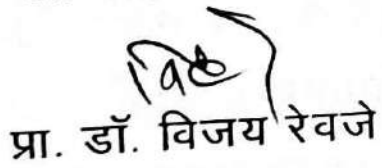 प्रा. डॉ. विजय रेवजे